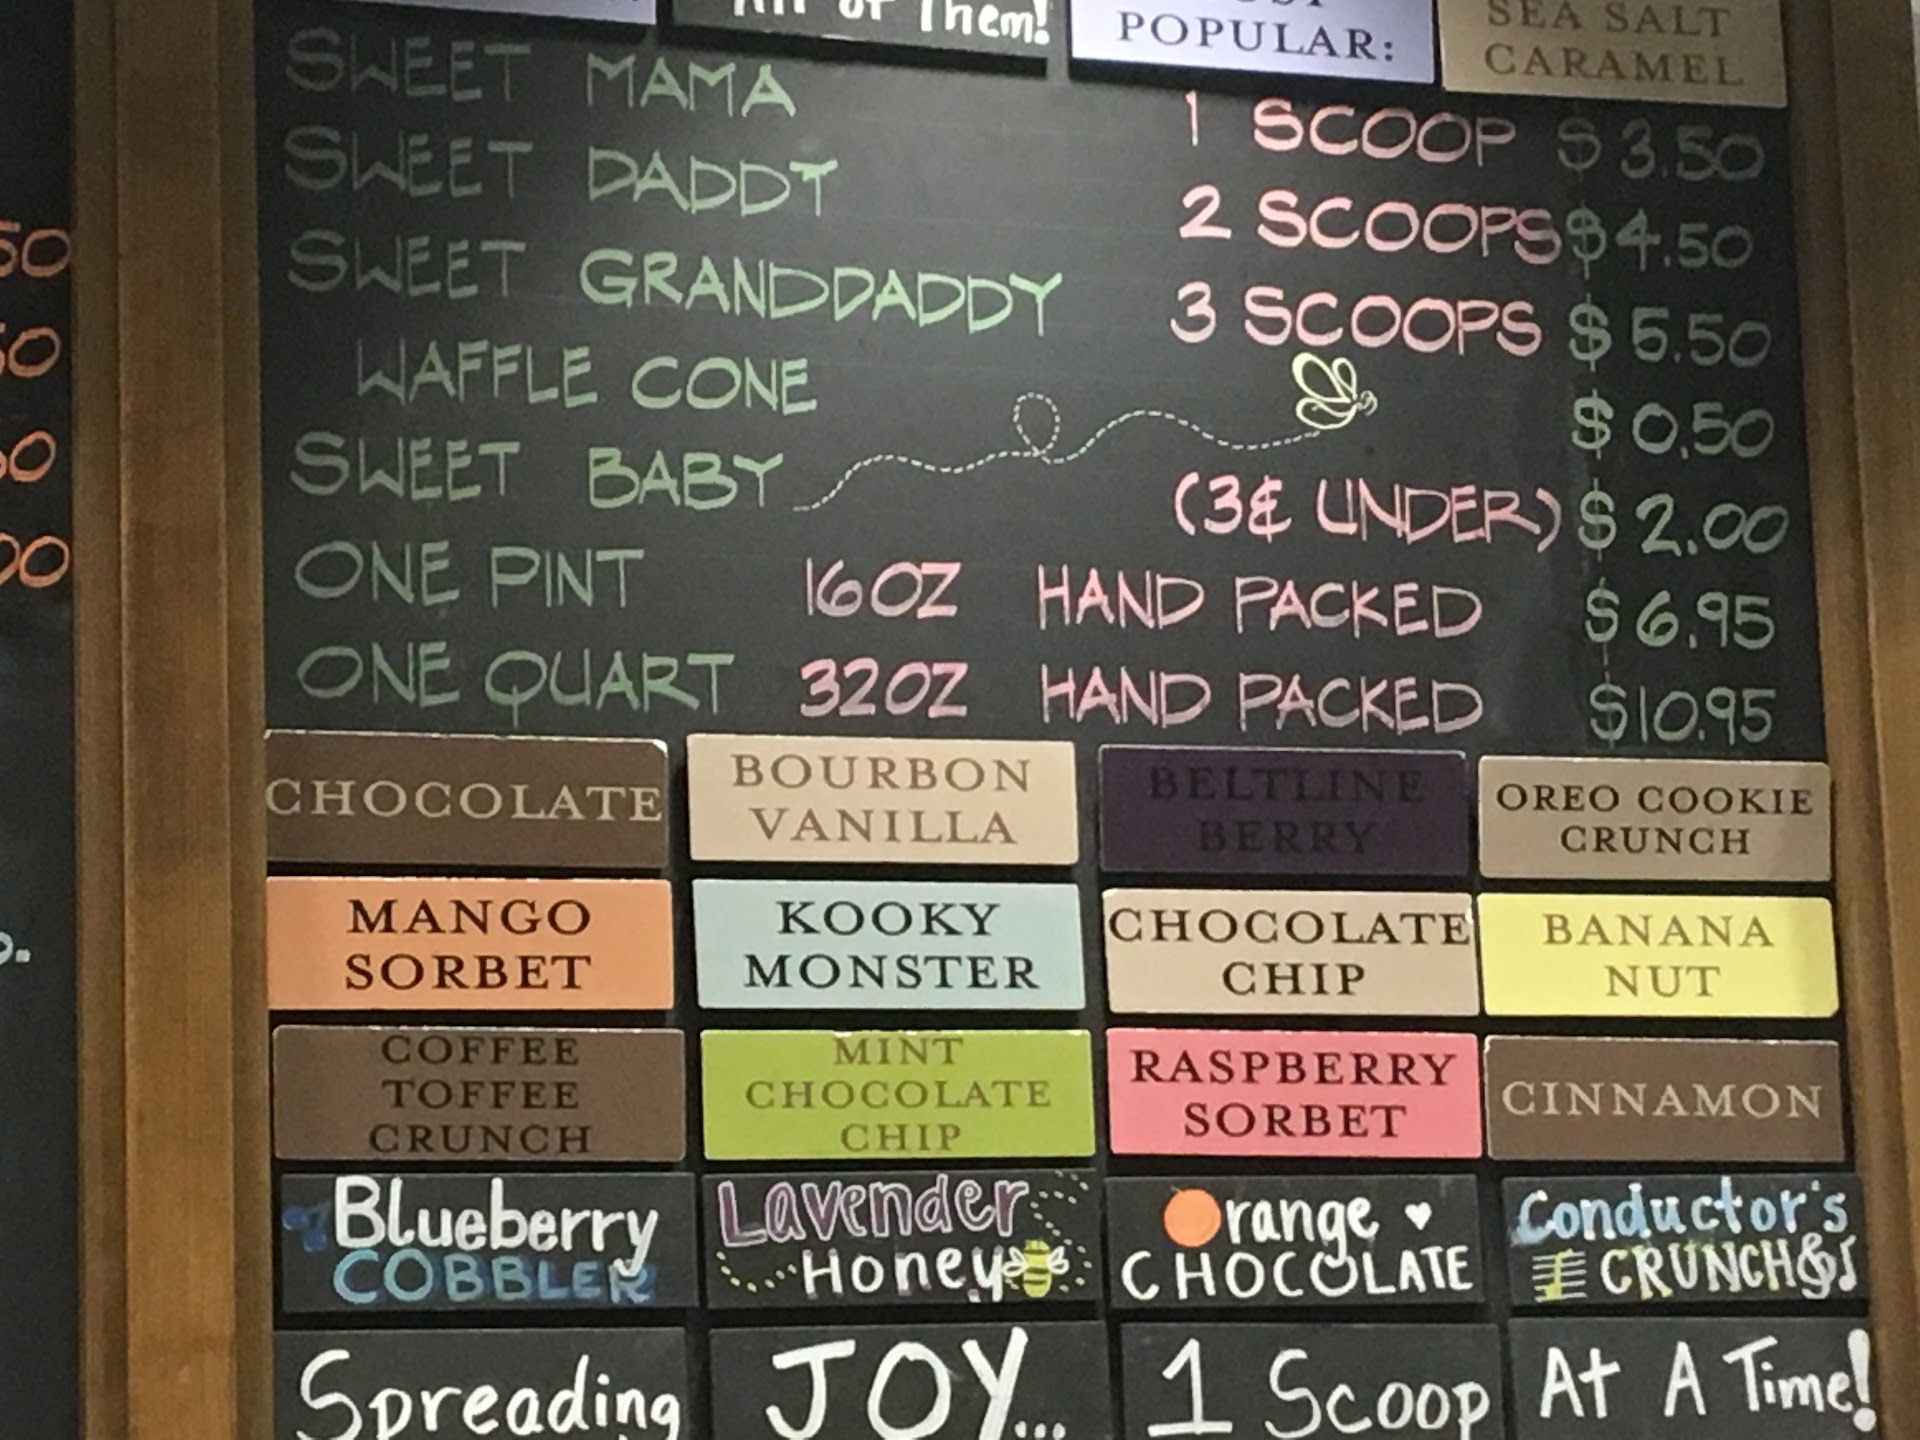 All of Them!
POPULAR:
SEA SALT
CARAMEL
SWEET MAMA 1 SCOOP $3.50
SWEET DADDY 2 SCOOPS $4.50
SWEET GRANDDADDY 3 SCOOPS $5.50
WAFFLE CONE $0.50
SWEET BABY (3& UNDER) $2.00
ONE PINT 16OZ HAND PACKED $6.95
ONE QUART 32OZ HAND PACKED $10.95
CHOCOLATE
BOURBON
VANILLA
BELTLINE
BERRY
OREO COOKIE
CRUNCH
MANGO
SORBET
KOOKY
MONSTER
CHOCOLATE
CHIP
BANANA
NUT
COFFEE
TOFFEE
CRUNCH
MINT
CHOCOLATE
CHIP
RASPBERRY
SORBET
CINNAMON
Blueberry
COBBLER
Lavender
Honey
Orange
CHOCOLATE
Conductor's
CRUNCH
Spreading
JOY...
1 Scoop
At A Time!